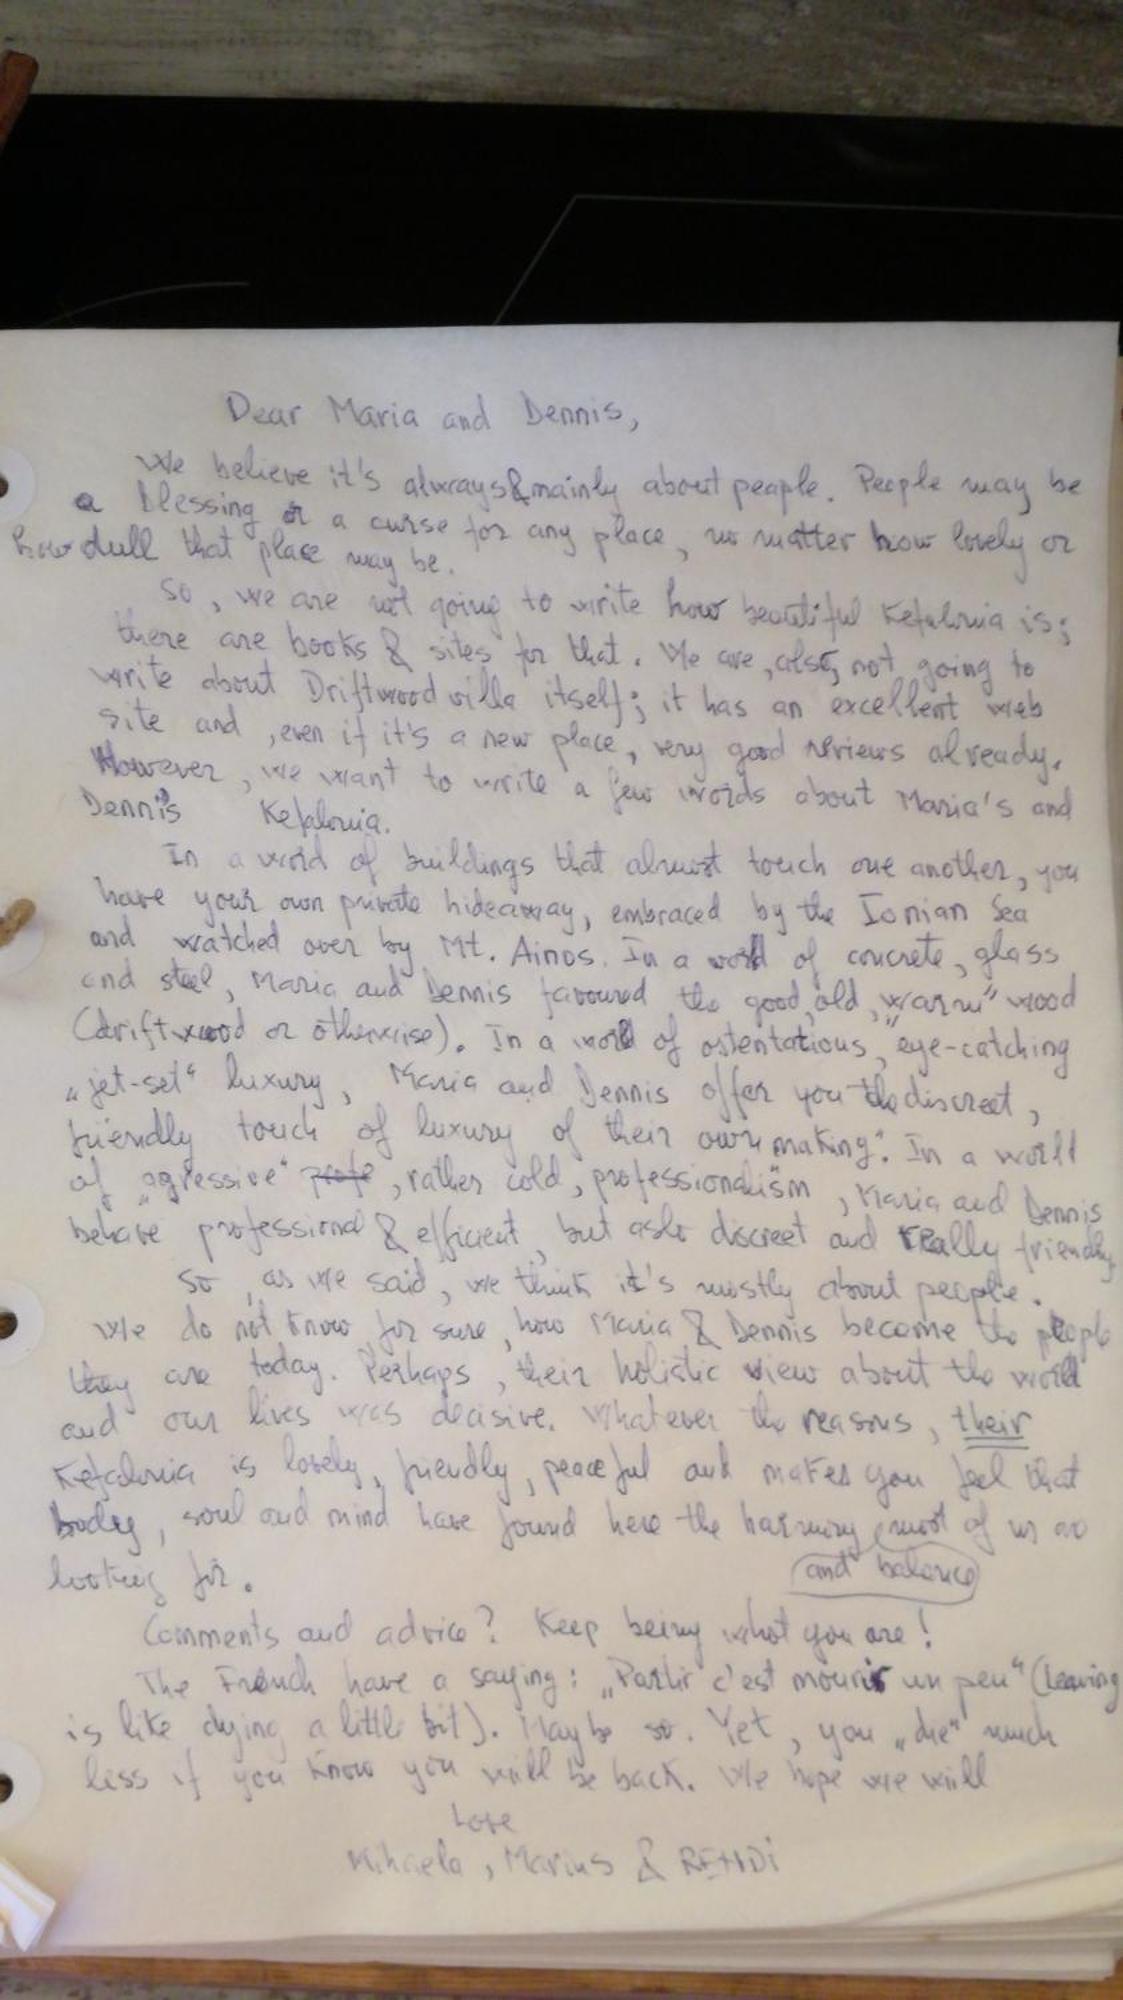 Dear Maria and Dennis,
We believe it's always & mainly about people. People may be
a blessing or a curse for any place, no matter how lovely or
how dull that place may be.
So, we are not going to write how beautiful Kefalonia is;
there are books & sites for that. We are, also, not going to
write about Driftwood villa itself; it has an excellent web
site and, even if it's a new place, very good reviews already.
However, we want to write a few words about Maria's and
Dennis' Kefalonia.
In a world of buildings that almost touch one another, you
have your own private hideaway, embraced by the Ionian Sea
and watched over by Mt. Ainos. In a world of concrete, glass
and steel, Maria and Dennis favoured the good, old, „warm" wood
(driftwood or otherwise). In a world of ostentatious, eye-catching
„jet-set" luxury, Maria and Dennis offer you the discreet,
friendly touch of luxury of their „own making". In a world
of „agressive" , rather cold, professionalism, Maria and Dennis
behave professional & efficient, but aslo discreet and really friendly.
So, as we said, we think it's mostly about people.
We do not know for sure, how Maria & Dennis became the people
they are today. Perhaps, their holistic view about the world
and our lives was decisive. Whatever the reasons, their
Kefalonia is lovely, friendly, peaceful and makes you feel that
body, soul and mind have found here the harmony most of us are
looking for. and balance
Comments and advice? Keep being what you are!
The French have a saying: „Partir c'est mourir un peu" (Leaving
is like dying a little bit). Maybe so. Yet, you „die" much
less if you know you will be back. We hope we will
Love
Mihaela, Marius &